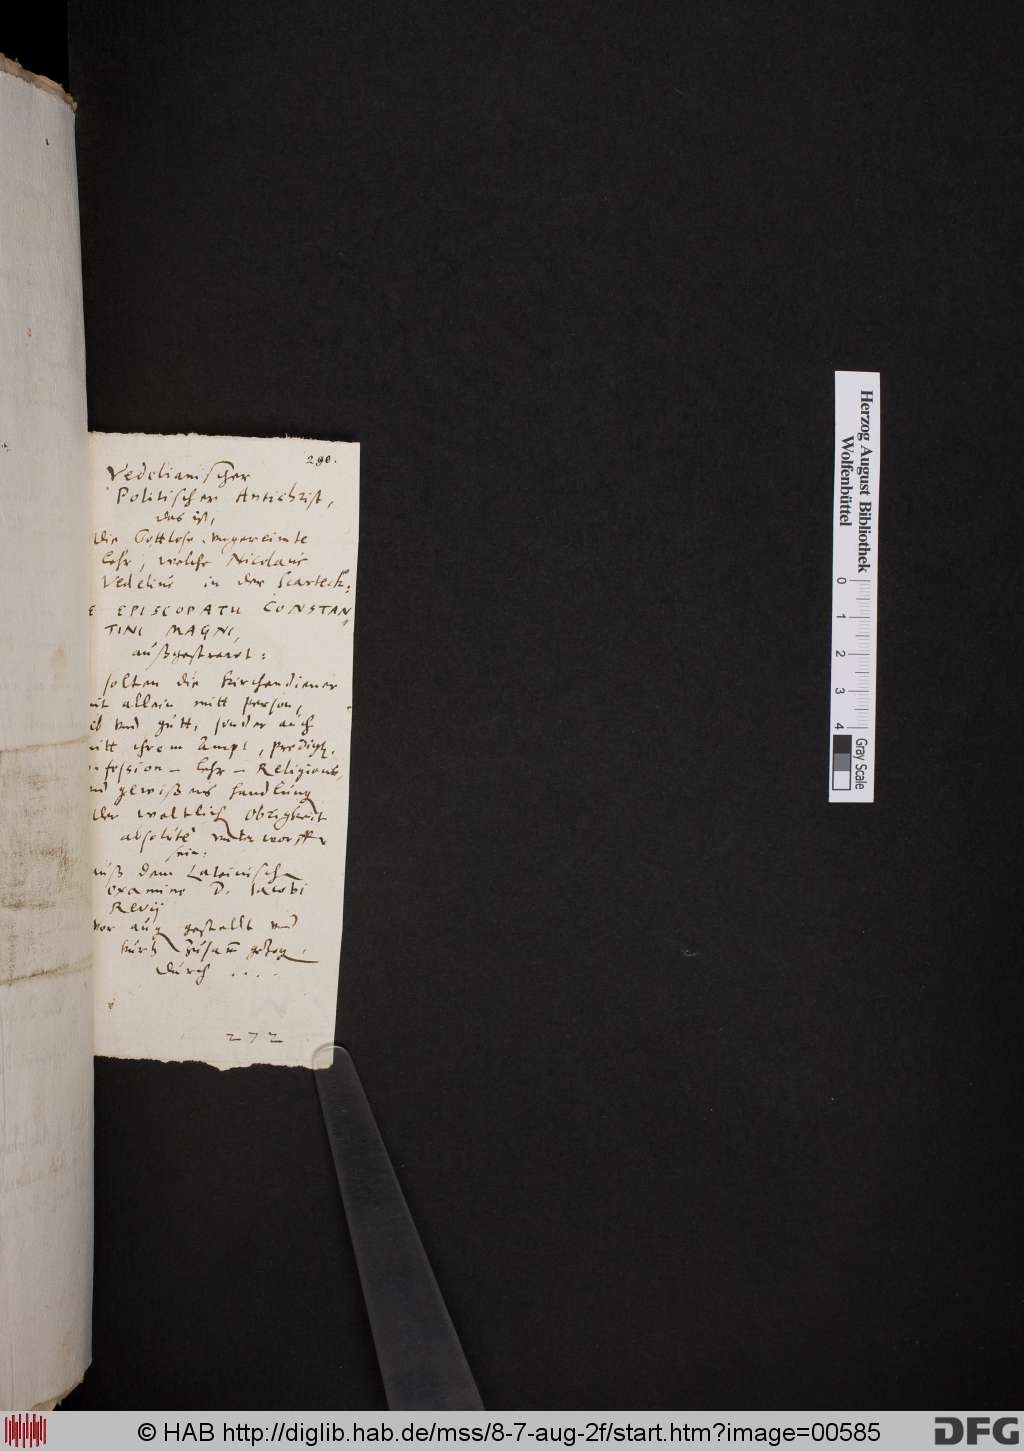 290.
Vedelianischer
Politischer Antichrist,
das ist,
die Gottlose ungereimte
Lehr, welche Nicolaus
Vedelius in der Scarteck:
E EPISCOPATU CONSTAN
TINI MAGNI,
außgestrewet:
solten die Kirchendiener
nit allein mitt person,
vnd gutt, sonder auch
mitt ihrem Ampt, predigt,
fession- Lehr- Religions,
vnd gewißens handlung
der weltlich Obrigkeit
absolute vnderworffen
sein:
auß dem Lateinisch
examine D. Iacobi
Revij
vor aug gestellt vnd
kurtz zusam gezog.
durch ....
272
Herzog August Bibliothek
Wolfenbüttel
0 1 2 3 4
Gray Scale
© HAB http://diglib.hab.de/mss/8-7-aug-2f/start.htm?image=00585
DFG